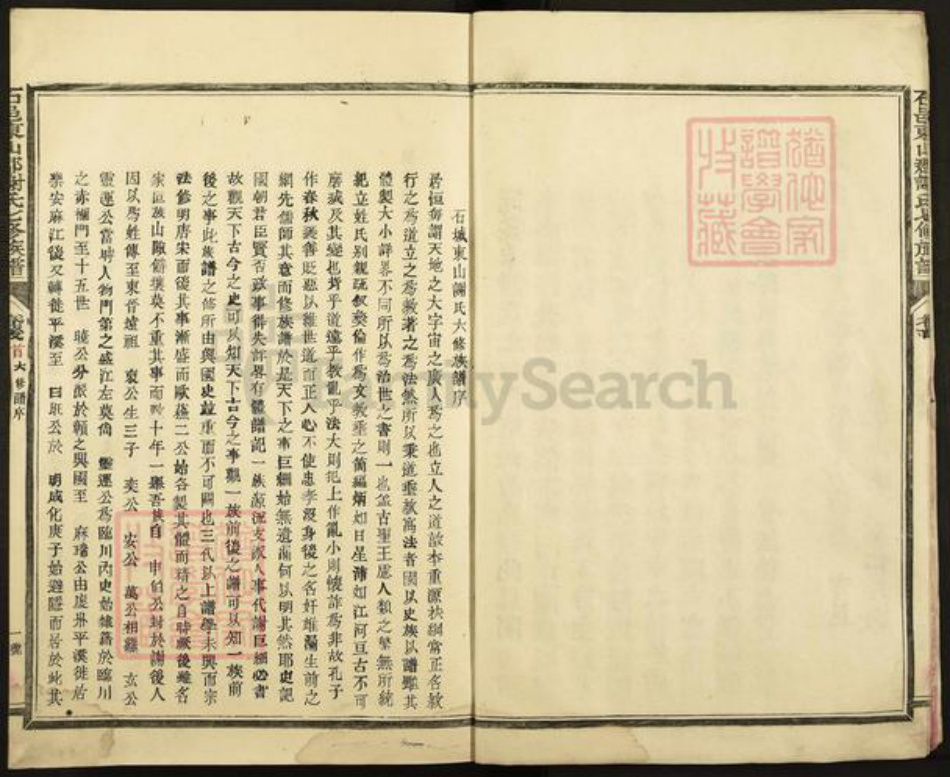 石城東山謝氏六修族譜序
居恒每謂天地之大宇宙之廣人為之也立人之道敦本重源扶綱常正名教
行之為道立之為教著之為法然所以秉道垂教寓法者國以史族以譜雖其
體製大小詳畧不同所以為治世之書則一也蓋古聖王慮人類之繁無所統
紀立姓氏別親疏叙彜倫作為文教垂之簡編炳如日星沛如江河亘古不可
磨滅及其變也背乎道遠乎教亂乎法大則犯上作亂小則懷詐為非故孔子
作春秋褒善貶惡以維世道而正人心不使忠孝沒身後之名奸雄漏生前之
網先儒師其意而修族譜於是天下之事巨細始無遺漏何以明其然耶史記
國朝君臣賢否政事得失詳畧有體譜記一族源流支派人事代謝巨細必書
故觀天下古今之史可以知天下古今之事觀一族前後之譜可以知一族前
後之事此族譜之修所由與國史並重而不可闕也三代以上譜學未興而宗
法修明唐宋而後其事漸盛而歐蘇二公始各製其體而精之自時厥後雖名
家巨族山陬僻壤莫不重其事而 十年一舉吾族自 申伯公封於謝後人
因以為姓傳至東晉遠祖 裒公生三子 奕公 安公 萬公相繼 玄公
靈運公當時人物門第之盛江左莫尚 靈運公為臨川內史始隸籍於臨川
之赤欄門至十五世 曉公分派於贛之興國至 麻 公由虔州平溪徙居
樂安麻江後又轉徙平溪至 曰 公於 明成化庚子始避隱而居於此其
石邑東山郡謝氏七修族譜
卷首
六修譜序
一
猶他家
譜學會
收藏
FamilySearch